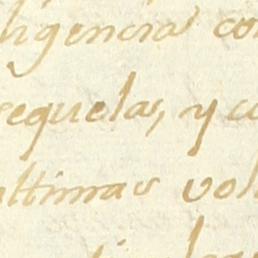 ligencia co
sequelas, y c
ultimas vol